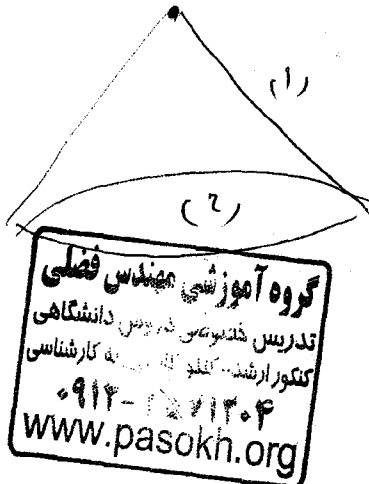 (۱)
(۲)
گروه آموزشی مهندس فضلی
تدریس خصوصی دروس دانشگاهی
کنکور ارشد، به کارشناسی
www.pasokh.org